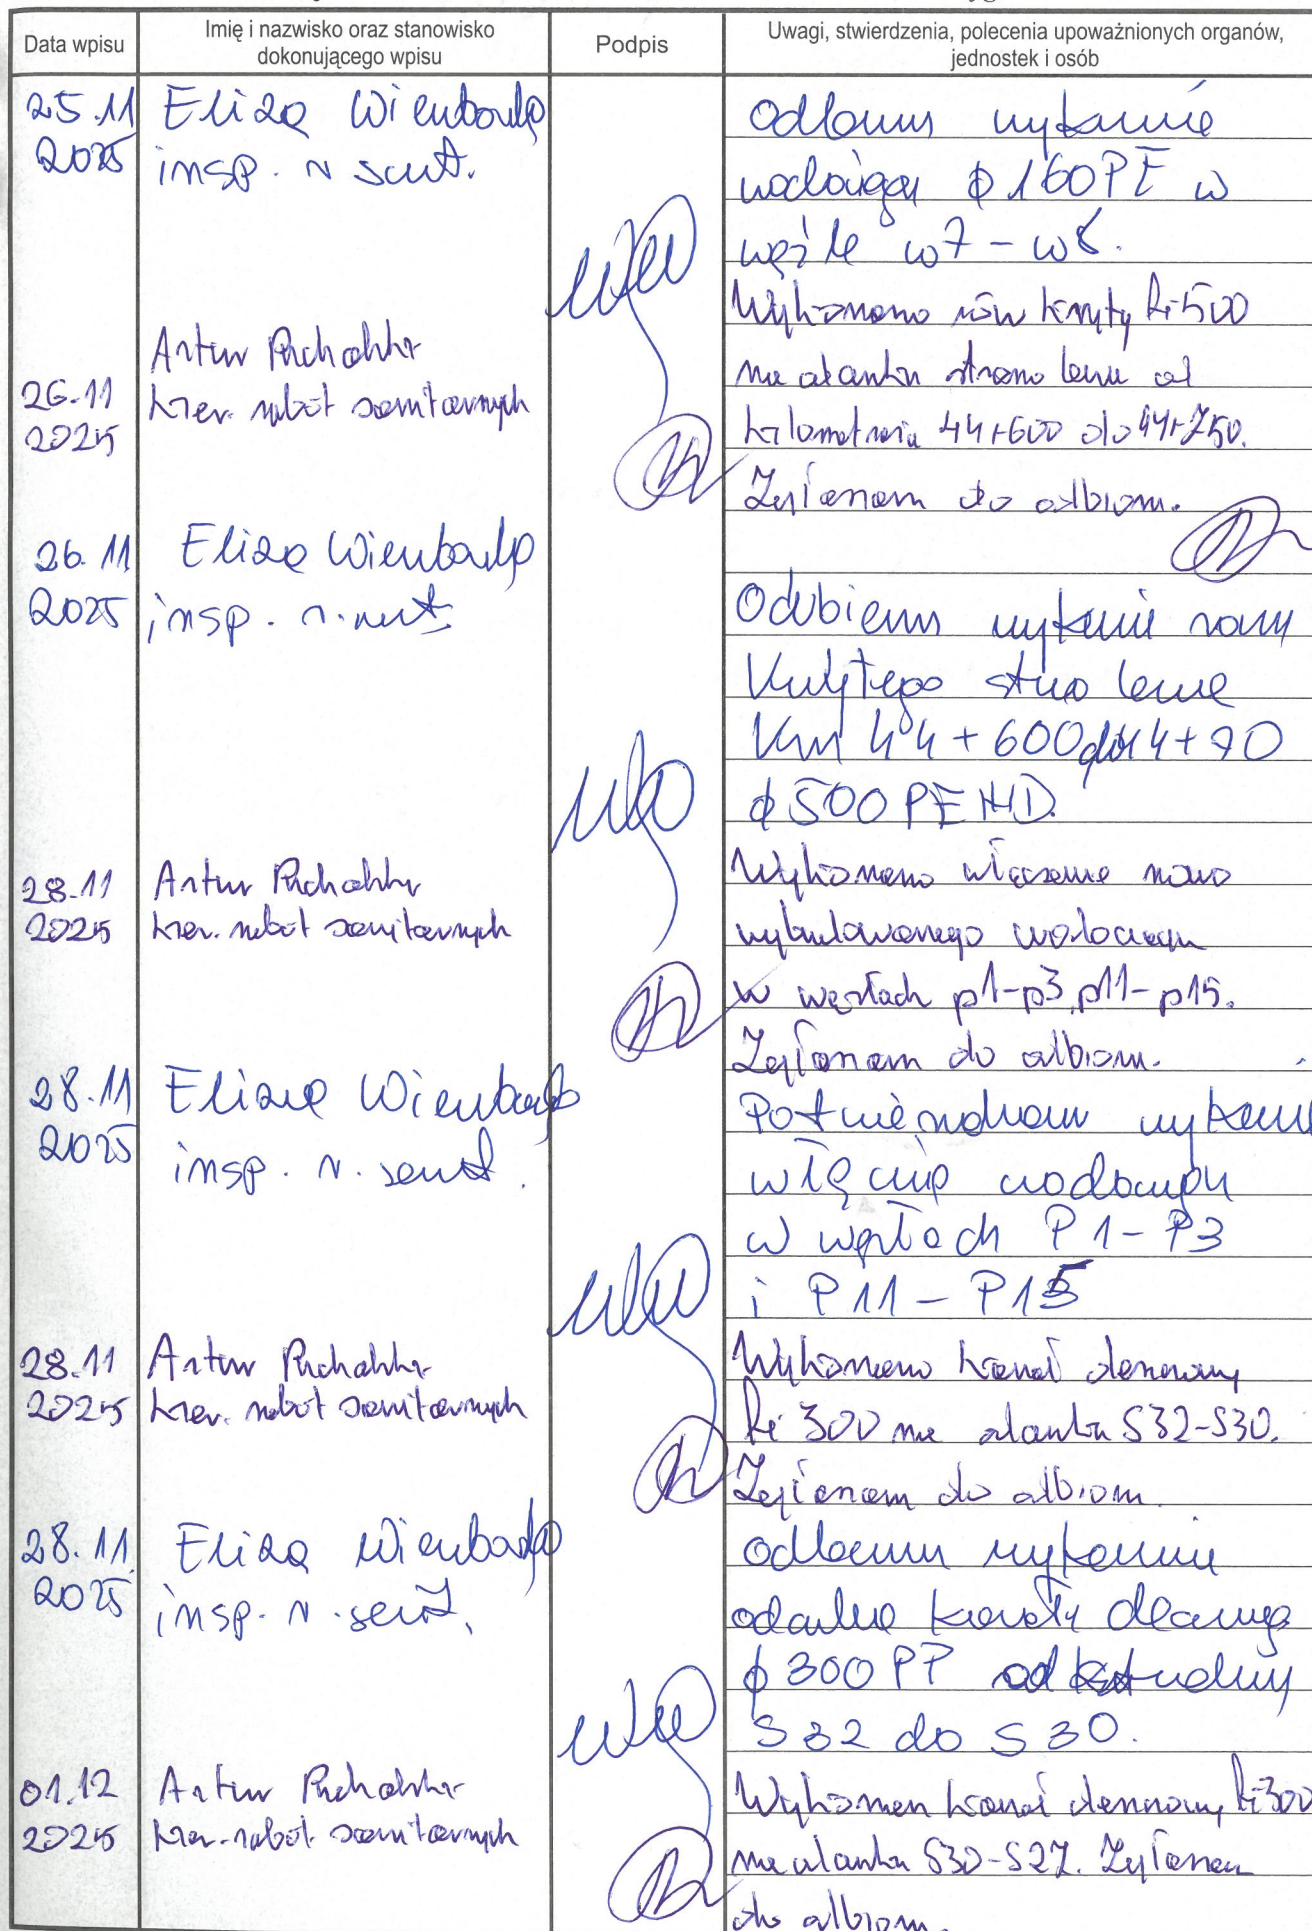 Data wpisu
Imię i nazwisko oraz stanowisko
dokonującego wpisu
Podpis
Uwagi, stwierdzenia, polecenia upoważnionych organów,
jednostek i osób
25.11
2025
Eliza
insp. r. sanit.
wodociągu ϕ 160PE w
węźle w7 - w8.
26.11
2025
Artur
kier. robót sanitarnych
Wykonano rów kryty fi-500
na odcinku strona lewa od
kilometraża 44+600 do 44+750.
Zgłaszam do odbioru.
26.11
2025
Eliza
insp. r.
Odebrano wykonanie rowu
krytego strona lewa
km 44+600 do 44+
ϕ 500 PEHD.
28.11
2025
Artur
kier. robót sanitarnych
Wykonano włączenie nowo
wybudowanego wodociągu
w węzłach p1-p3, p11-p15.
Zgłaszam do odbioru.
28.11
2025
Eliza
insp. r. sanit.
Potwierdzam wykonanie
w węzłach P1-P3
i P11-P15
28.11
2025
Artur
kier. robót sanitarnych
Wykonano kanał deszczowy
fi 300 na odcinku S32-S30.
Zgłaszam do odbioru.
28.11
2025
Eliza
insp. r. sanit.
ϕ 300 PP od studni
S32 do S30.
01.12
2025
Artur
kier. robót sanitarnych
Wykonano kanał deszczowy fi-300
na odcinku S30-S27. Zgłaszam
do odbioru.